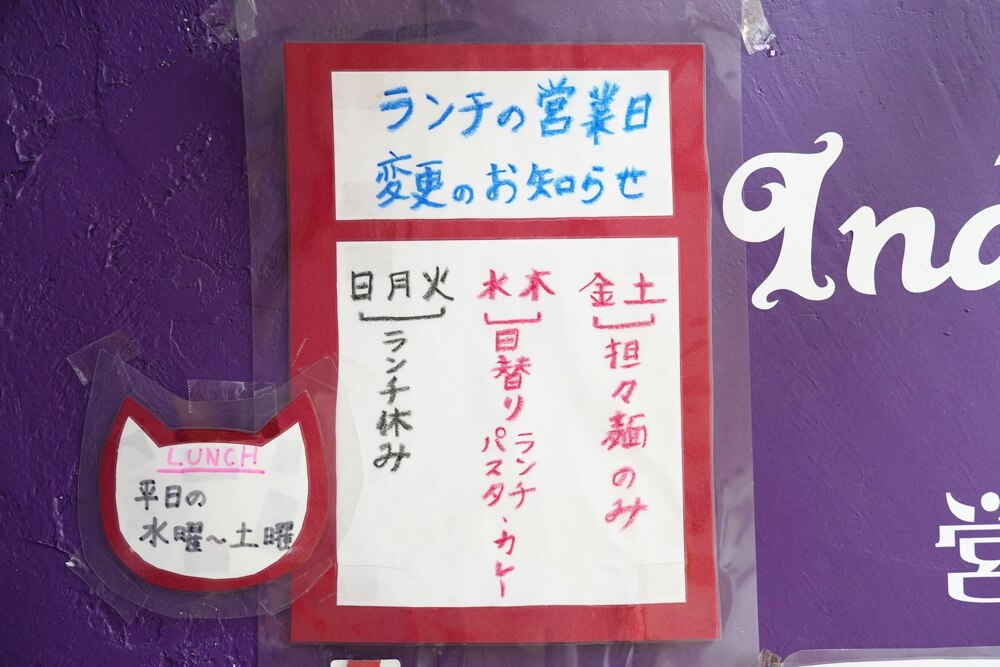 ランチの営業日
変更のお知らせ
金土
担々麺のみ
水木
日替り
ランチ
パスタ、カレー
日月火
ランチ休み
LUNCH
平日の
水曜〜土曜
Ind
営